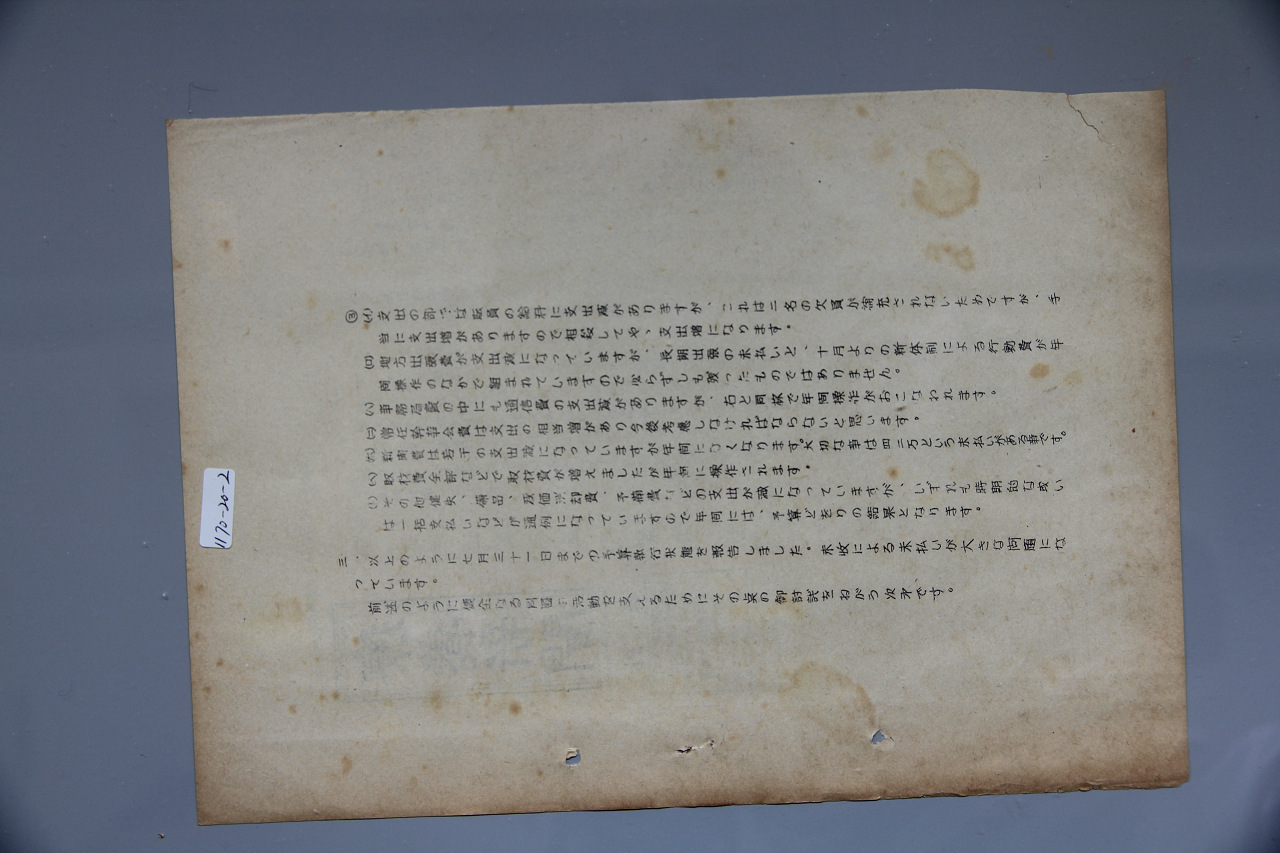 ③(イ)支出の部では職員の給料に支出減がありますが、これは二名の欠員が補充されないためですが、手
当に支出増がありますので相殺してやゝ支出増になります。
(ロ)地方出張費が支出減になっていますが、長期出張の未払いと、十月よりの新体制による行動費が年
間操作のなかで組まれていますので必らずしも減ったものではありません。
(ハ)事務局費の中にも通信費の支出減がありますが、右と同様で年間操作がおこなわれます。
(ニ)常任幹事会費は支出の相当増があり今後考慮しなければならないと思います。
(ホ)新聞費は若干の支出減になっていますが年間になくなります。大切な事は四二万という未払いがある事です。
(ヘ)取材費全部などで取材費が増えましたが年間に操作されます。
(ト)その他健失、備品、減価償却費、予備費などの支出が減になっていますが、いずれも時期的な或い
は一括支払いなどが通例になっていますので年間には、予算どをりの結果となります。
三、以上のように七月三十一日までの予算執行状態を報告しました。未収による未払いが大きな問題にな
っています。
前述のように健全なる同盟活動を支えるためにその点の御討議をねがう次才です。
1170-20-2